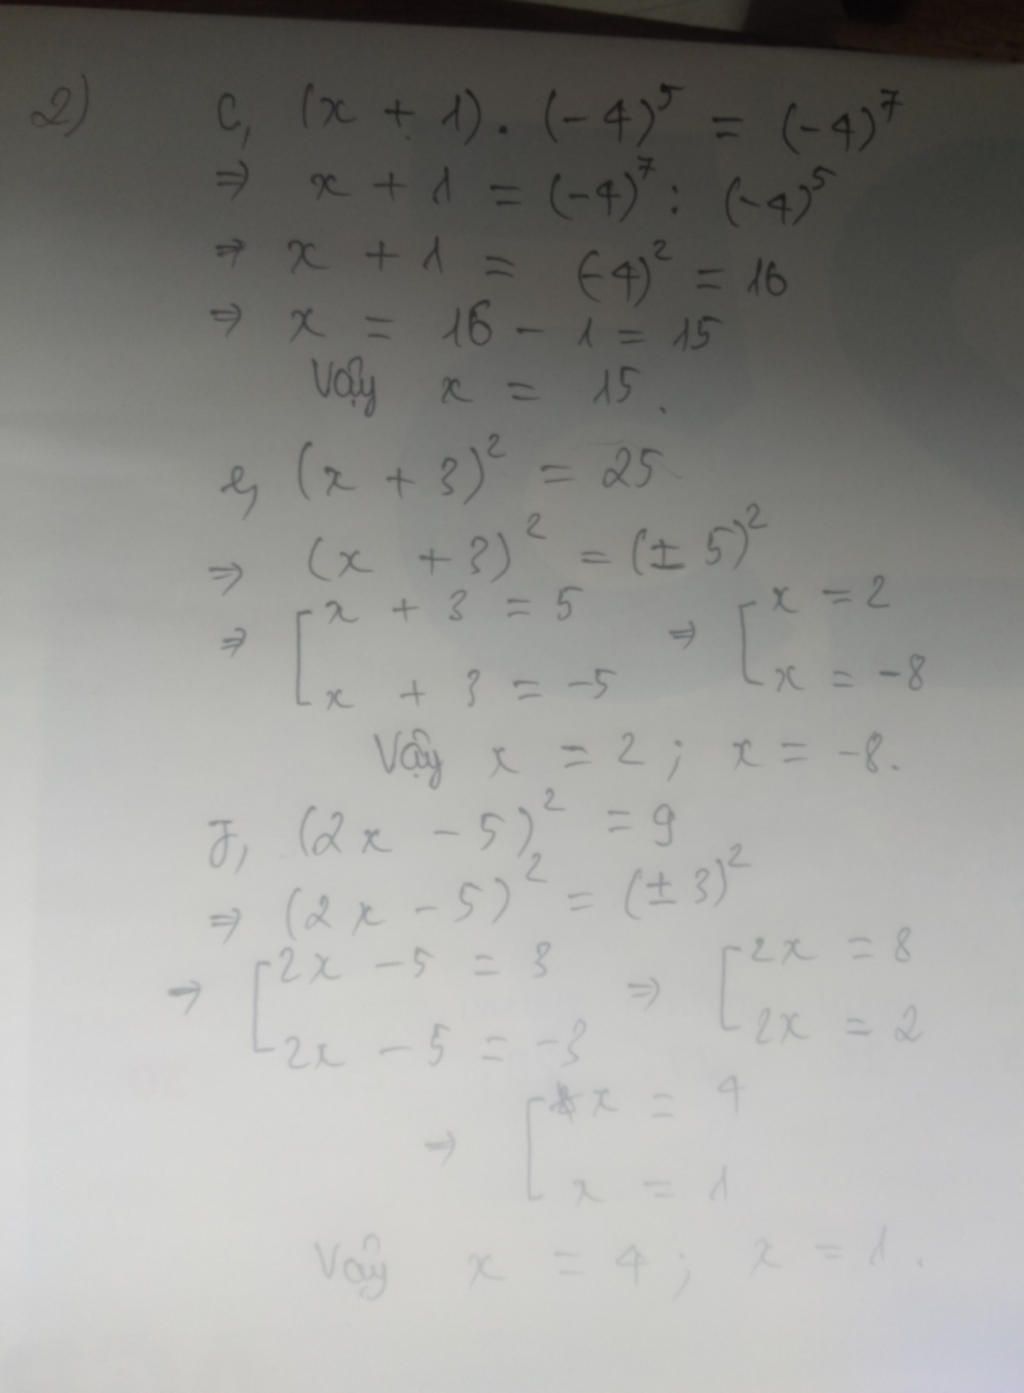 2) c, (x + 1) . (-4)⁵ = (-4)⁷
⇒ x + 1 = (-4)⁷ : (-4)⁵
⇒ x + 1 = (-4)² = 16
⇒ x = 16 - 1 = 15
Vậy x = 15.
e, (x + 3)² = 25
⇒ (x + 3)² = (± 5)²
⇒ [ x + 3 = 5 ⇒ [ x = 2
x + 3 = -5 x = -8
Vậy x = 2 ; x = -8.
f, (2x - 5)² = 9
⇒ (2x - 5)² = (± 3)²
⇒ [ 2x - 5 = 3 ⇒ [ 2x = 8
2x - 5 = -3 2x = 2
⇒ [ x = 4
x = 1
Vậy x = 4 ; x = 1.